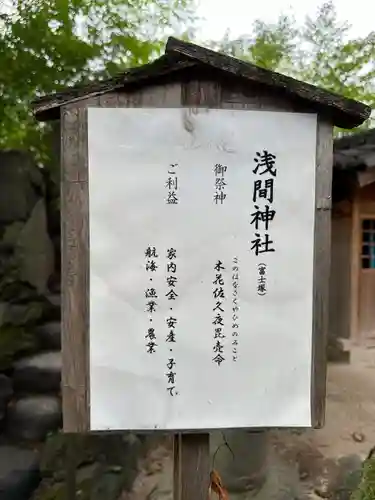 浅間神社(富士塚)
御祭神
このはなさくやひめのみこと
木花佐久夜毘売命
ご利益
家内安全・安産・子育て
航海・漁業・農業